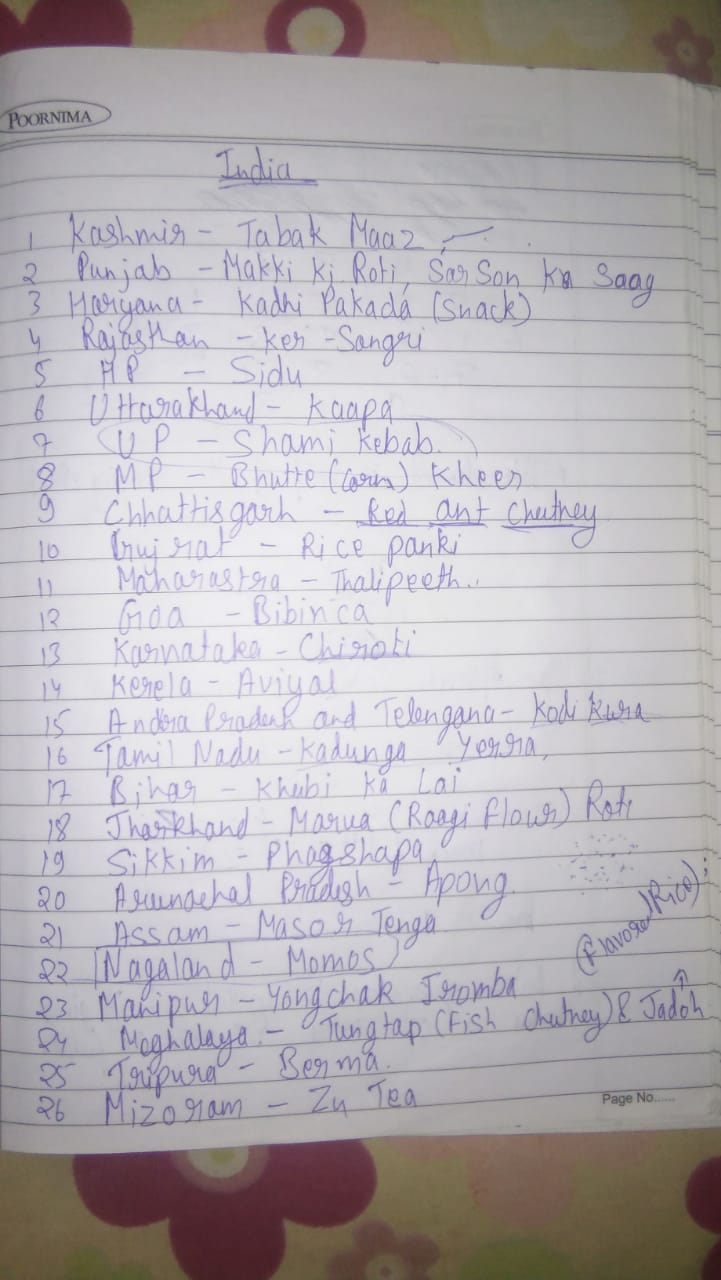 POORNIMA
India
1 Kashmir - Tabak Maaz
2 Punjab - Makki ki Roti, Sarson ka Saag
3 Haryana - Kadhi Pakada (Snack)
4 Rajasthan - Ker - Sangri
5 HP - Sidu
6 Uttarakhand - Kaapa
7 UP - Shami Kebab.
8 MP - Bhutte (Corn) Kheer
9 Chhattisgarh - Red ant Chutney
10 Gujrat - Rice panki
11 Maharastra - Thalipeeth..
12 Goa - Bibinca
13 Karnataka - Chiroti
14 Kerela - Aviyal
15 Andra Pradesh and Telengana - Kodi Kura
16 Tamil Nadu - Kadunga Yerra,
17 Bihar - Khubi Ka Lai
18 Jharkhand - Marua (Raagi flour) Roti
19 Sikkim - Phagshapa
20 Arunachal Pradesh - Apong.
21 Assam - Masor Tenga
22 Nagaland - Momos
23 Manipur - Yongchak Iromba
(Flavored Rice)
24 Meghalaya. - Tungtap (Fish Chutney) & Jadoh
25 Tripura - Berma.
26 Mizoram - Zu Tea
Page No......